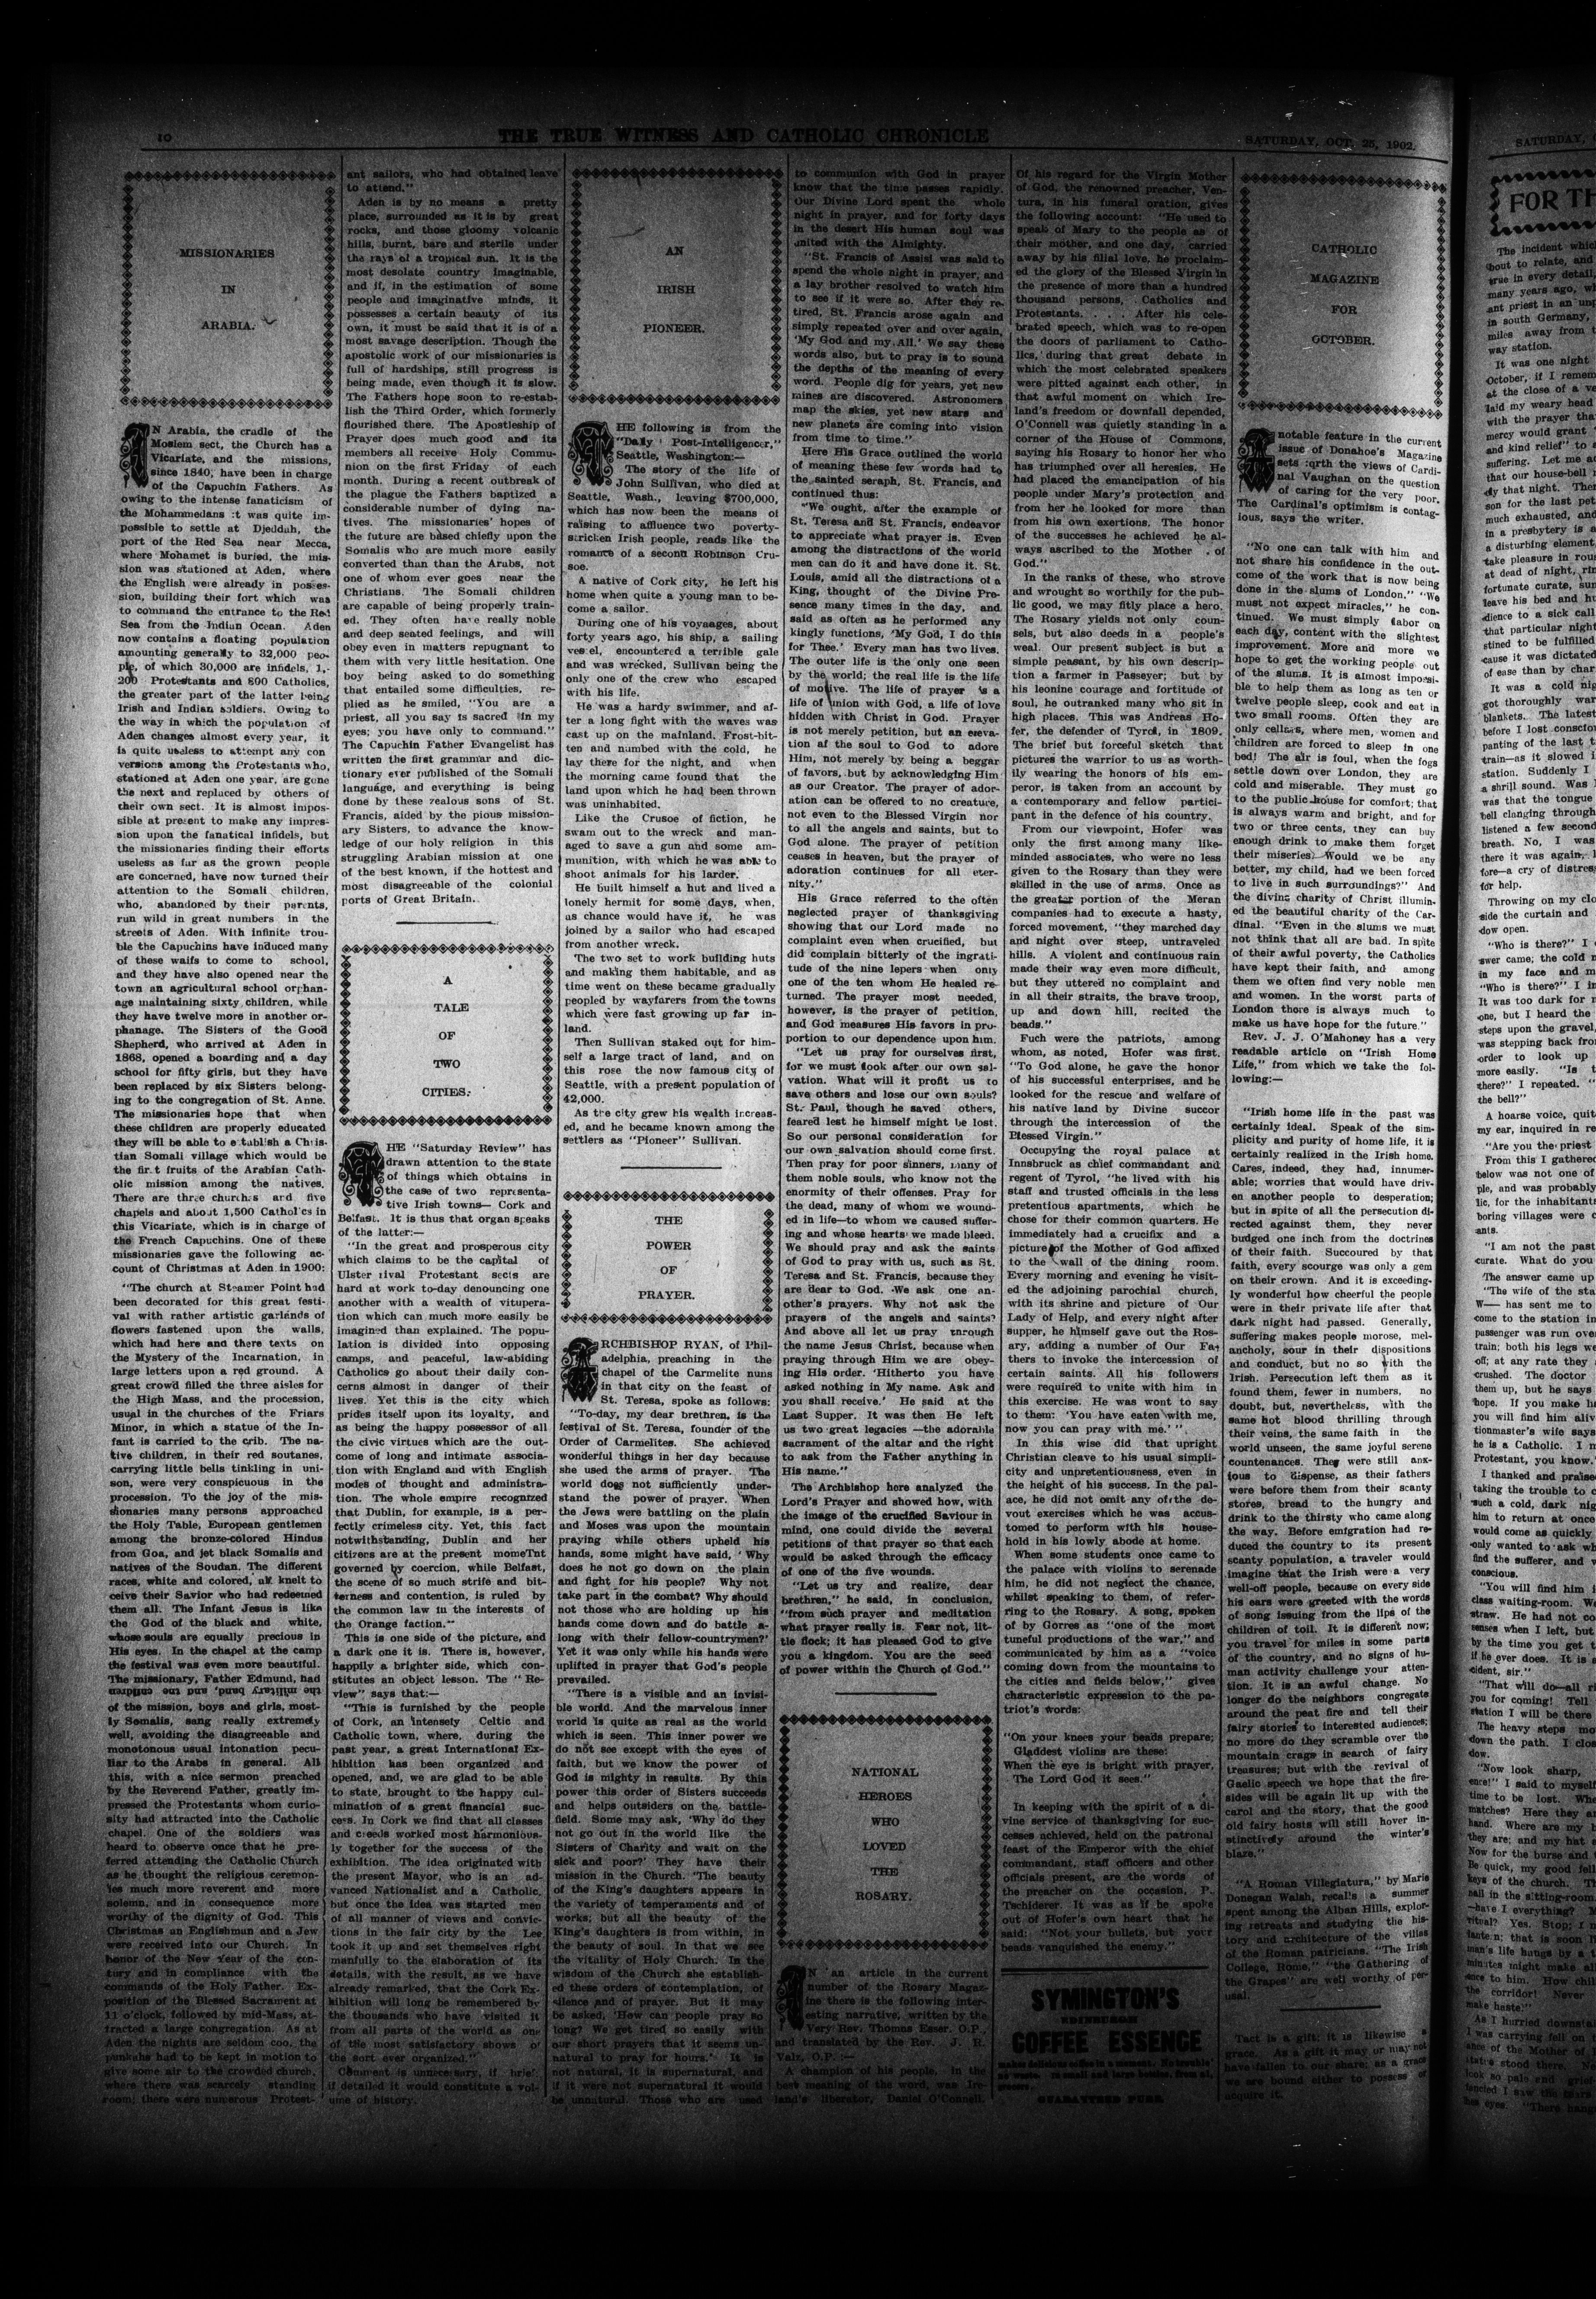 10
THE TRUE WITNESS AND CATHOLIC CHRONICLE
SATURDAY, OCT. 25, 1902.
MISSIONARIES
IN
ARABIA.
IN Arabia, the cradle of the
Moslem sect, the Church has a
Vicariate, and the missions,
since 1840, have been in charge
of the Capuchin Fathers. As
owing to the intense fanaticism of
the Mohammedans it was quite im-
possible to settle at Djeddah, the
port of the Red Sea near Mecca,
where Mohamet is buried, the mis-
sion was stationed at Aden, where
the English were already in posses-
sion, building their fort which was
to command the entrance to the Red
Sea from the Indian Ocean. Aden
now contains a floating population
amounting generally to 32,000 peo-
ple, of which 30,000 are infidels, 1,-
200 Protestants and 800 Catholics,
the greater part of the latter being
Irish and Indian soldiers. Owing to
the way in which the population of
Aden changes almost every year, it
is quite useless to attempt any con
versions among the Protestants who,
stationed at Aden one year, are gone
the next and replaced by others of
their own sect. It is almost impos-
sible at present to make any impres-
sion upon the fanatical infidels, but
the missionaries finding their efforts
useless as far as the grown people
are concerned, have now turned their
attention to the Somali children,
who, abandoned by their parents,
run wild in great numbers in the
streets of Aden. With infinite trou-
ble the Capuchins have induced many
of these waifs to come to school,
and they have also opened near the
town an agricultural school orphan-
age maintaining sixty children, while
they have twelve more in another or-
phanage. The Sisters of the Good
Shepherd, who arrived at Aden in
1868, opened a boarding and a day
school for fifty girls, but they have
been replaced by six Sisters belong-
ing to the congregation of St. Anne.
The missionaries hope that when
these children are properly educated
they will be able to establish a Chris-
tian Somali village which would be
the first fruits of the Arabian Cath-
olic mission among the natives.
There are three churches and five
chapels and about 1,500 Catholics in
this Vicariate, which is in charge of
the French Capuchins. One of these
missionaries gave the following ac-
count of Christmas at Aden in 1900:
"The church at Steamer Point had
been decorated for this great festi-
val with rather artistic garlands of
flowers fastened upon the walls,
which had here and there texts on
the Mystery of the Incarnation, in
large letters upon a red ground. A
great crowd filled the three aisles for
the High Mass, and the procession,
usual in the churches of the Friars
Minor, in which a statue of the In-
fant is carried to the crib. The na-
tive children, in their red soutanes,
carrying little bells tinkling in uni-
son, were very conspicuous in the
procession. To the joy of the mis-
sionaries many persons approached
the Holy Table, European gentlemen
among the bronze-colored Hindus
from Goa, and jet black Somalis and
natives of the Soudan. The different
races, white and colored, all knelt to
ceive their Savior who had redeemed
them all. The Infant Jesus is like
the God of the black and white,
whose souls are equally precious in
His eyes. In the chapel at the camp
the festival was even more beautiful.
The missionary, Father Edmund, had
the military band, and the children
of the mission, boys and girls, most-
ly Somalis, sang really extremely
well, avoiding the disagreeable and
monotonous usual intonation pecu-
liar to the Arabs in general. All
this, with a nice sermon preached
by the Reverend Father, greatly im-
pressed the Protestants whom curio-
sity had attracted into the Catholic
chapel. One of the soldiers was
heard to observe once that he pre-
ferred attending the Catholic Church
as he thought the religious ceremon-
ies much more reverent and more
solemn, and in consequence more
worthy of the dignity of God. This
Christmas an Englishman and a Jew
were received into our Church. In
honor of the New Year of the cen-
tury and in compliance with the
commands of the Holy Father. Ex-
position of the Blessed Sacrament at
11 o'clock, followed by mid-Mass, at-
tracted a large congregation. As at
Aden the nights are seldom coo, the
punkahs had to be kept in motion to
give some air to the crowded church,
where there was scarcely standing
room; there were numerous Protest-
ant sailors, who had obtained leave
to attend."
Aden is by no means a pretty
place, surrounded as it is by great
rocks, and those gloomy volcanic
hills, burnt, bare and sterile under
the rays of a tropical sun. It is the
most desolate country imaginable,
and if, in the estimation of some
people and imaginative minds, it
possesses a certain beauty of its
own, it must be said that it is of a
most savage description. Though the
apostolic work of our missionaries is
full of hardships, still progress is
being made, even though it is slow.
The Fathers hope soon to re-estab-
lish the Third Order, which formerly
flourished there. The Apostleship of
Prayer does much good and its
members all receive Holy Commu-
nion on the first Friday of each
month. During a recent outbreak of
the plague the Fathers baptized a
considerable number of dying na-
tives. The missionaries' hopes of
the future are based chiefly upon the
Somalis who are much more easily
converted than than the Arabs, not
one of whom ever goes near the
Christians. The Somali children
are capable of being properly train-
ed. They often have really noble
and deep seated feelings, and will
obey even in matters repugnant to
them with very little hesitation. One
boy being asked to do something
that entailed some difficulties, re-
plied as he smiled, "You are a
priest, all you say is sacred in my
eyes; you have only to command."
The Capuchin Father Evangelist has
written the first grammar and dic-
tionary ever published of the Somali
language, and everything is being
done by these zealous sons of St.
Francis, aided by the pious mission-
ary Sisters, to advance the know-
ledge of our holy religion in this
struggling Arabian mission at one
of the best known, if the hottest and
most disagreeable of the colonial
ports of Great Britain.
A
TALE
OF
TWO
CITIES.
THE "Saturday Review" has
drawn attention to the state
of things which obtains in
the case of two representa-
tive Irish towns— Cork and
Belfast. It is thus that organ speaks
of the latter:—
"In the great and prosperous city
which claims to be the capital of
Ulster rival Protestant sects are
hard at work to-day denouncing one
another with a wealth of vitupera-
tion which can much more easily be
imagined than explained. The popu-
lation is divided into opposing
camps, and peaceful, law-abiding
Catholics go about their daily con-
cerns almost in danger of their
lives. Yet this is the city which
prides itself upon its loyalty, and
as being the happy possessor of all
the civic virtues which are the out-
come of long and intimate associa-
tion with England and with English
modes of thought and administra-
tion. The whole empire recognized
that Dublin, for example, is a per-
fectly crimeless city. Yet, this fact
notwithstanding, Dublin and her
citizens are at the present momeTnt
governed by coercion, while Belfast,
the scene of so much strife and bit-
terness and contention, is ruled by
the common law in the interests of
the Orange faction."
This is one side of the picture, and
a dark one it is. There is, however,
happily a brighter side, which con-
stitutes an object lesson. The "Re-
view" says that:—
"This is furnished by the people
of Cork, an intensely Celtic and
Catholic town, where, during the
past year, a great International Ex-
hibition has been organized and
opened, and, we are glad to be able
to state, brought to the happy cul-
mination of a great financial suc-
cess. In Cork we find that all classes
and creeds worked most harmonious-
ly together for the success of the
exhibition. The idea originated with
the present Mayor, who is an ad-
vanced Nationalist and a Catholic,
but once the idea was started men
of all manner of views and convic-
tions in the fair city by the Lee
took it up and set themselves right
manfully to the elaboration of its
details, with the result, as we have
already remarked, that the Cork Ex-
hibition will long be remembered by
the thousands who have visited it
from all parts of the world as one
of the most satisfactory shows of
the sort ever organized."
Comment is unnecessary, if brief;
if detailed it would constitute a vol-
ume of history.
AN
IRISH
PIONEER.
THE following is from the
"Daily Post-Intelligencer,"
Seattle, Washington:—
The story of the life of
John Sullivan, who died at
Seattle, Wash., leaving $700,000,
which has now been the means of
raising to affluence two poverty-
stricken Irish people, reads like the
romance of a second Robinson Cru-
soe.
A native of Cork city, he left his
home when quite a young man to be-
come a sailor.
During one of his voyages, about
forty years ago, his ship, a sailing
vessel, encountered a terrible gale
and was wrecked, Sullivan being the
only one of the crew who escaped
with his life.
He was a hardy swimmer, and af-
ter a long fight with the waves was
cast up on the mainland. Frost-bit-
ten and numbed with the cold, he
lay there for the night, and when
the morning came found that the
land upon which he had been thrown
was uninhabited.
Like the Crusoe of fiction, he
swam out to the wreck and man-
aged to save a gun and some am-
munition, with which he was able to
shoot animals for his larder.
He built himself a hut and lived a
lonely hermit for some days, when,
as chance would have it, he was
joined by a sailor who had escaped
from another wreck.
The two set to work building huts
and making them habitable, and as
time went on these became gradually
peopled by wayfarers from the towns
which were fast growing up far in-
land.
Then Sullivan staked out for him-
self a large tract of land, and on
this rose the now famous city of
Seattle, with a present population of
42,000.
As the city grew his wealth increas-
ed, and he became known among the
settlers as "Pioneer" Sullivan.
THE
POWER
OF
PRAYER.
ARCHBISHOP RYAN, of Phil-
adelphia, preaching in the
chapel of the Carmelite nuns
in that city on the feast of
St. Teresa, spoke as follows:
"To-day, my dear brethren, is the
festival of St. Teresa, founder of the
Order of Carmelites. She achieved
wonderful things in her day because
she used the arms of prayer. The
world does not sufficiently under-
stand the power of prayer. When
the Jews were battling on the plain
and Moses was upon the mountain
praying while others upheld his
hands, some might have said, 'Why
does he not go down on the plain
and fight for his people? Why not
take part in the combat? Why should
not those who are holding up his
hands come down and do battle a-
long with their fellow-countrymen?'
Yet it was only while his hands were
uplifted in prayer that God's people
prevailed.
"There is a visible and an invisi-
ble world. And the marvelous inner
world is quite as real as the world
which is seen. This inner power we
do not see except with the eyes of
faith, but we know the power of
God is mighty in results. By this
power this order of Sisters succeeds
and helps outsiders on the battle-
field. Some may ask, 'Why do they
not go out in the world like the
Sisters of Charity and wait on the
sick and poor?' They have their
mission in the Church. 'The beauty
of the King's daughters appears in
the variety of temperaments and of
works; but all the beauty of the
King's daughters is from within, in
the beauty of soul. In that we see
the vitality of Holy Church. In the
wisdom of the Church she establish-
ed these orders of contemplation, of
silence and of prayer. But it may
be asked, 'How can people pray so
long? We get tired so easily with
our short prayers that it seems un-
natural to pray for hours.' It is
not natural, it is supernatural, and
if it were not supernatural it would
be unnatural. Those who are used
to communion with God in prayer
know that the time passes rapidly.
Our Divine Lord spent the whole
night in prayer, and for forty days
in the desert His human soul was
united with the Almighty.
"St. Francis of Assisi was said to
spend the whole night in prayer, and
a lay brother resolved to watch him
to see if it were so. After they re-
tired, St. Francis arose again and
simply repeated over and over again,
'My God and my All.' We say these
words also, but to pray is to sound
the depths of the meaning of every
word. People dig for years, yet new
mines are discovered. Astronomers
map the skies, yet new stars and
new planets are coming into vision
from time to time."
Here His Grace outlined the world
of meaning these few words had to
the sainted seraph, St. Francis, and
continued thus:
"We ought, after the example of
St. Teresa and St. Francis, endeavor
to appreciate what prayer is. Even
among the distractions of the world
men can do it and have done it. St.
Louis, amid all the distractions of a
King, thought of the Divine Pre-
sence many times in the day, and
said as often as he performed any
kingly functions, 'My God, I do this
for Thee.' Every man has two lives.
The outer life is the only one seen
by the world; the real life is the life
of motive. The life of prayer is a
life of union with God, a life of love
hidden with Christ in God. Prayer
is not merely petition, but an eleva-
tion of the soul to God to adore
Him, not merely by being a beggar
of favors, but by acknowledging Him
as our Creator. The prayer of ador-
ation can be offered to no creature,
not even to the Blessed Virgin nor
to all the angels and saints, but to
God alone. The prayer of petition
ceases in heaven, but the prayer of
adoration continues for all eter-
nity."
His Grace referred to the often
neglected prayer of thanksgiving
showing that our Lord made no
complaint even when crucified, but
did complain bitterly of the ingrati-
tude of the nine lepers when only
one of the ten whom He healed re-
turned. The prayer most needed,
however, is the prayer of petition,
and God measures His favors in pro-
portion to our dependence upon him.
"Let us pray for ourselves first,
for we must look after our own sal-
vation. What will it profit us to
save others and lose our own souls?
St. Paul, though he saved others,
feared lest he himself might be lost.
So our personal consideration for
our own salvation should come first.
Then pray for poor sinners, many of
them noble souls, who know not the
enormity of their offenses. Pray for
the dead, many of whom we wound-
ed in life—to whom we caused suffer-
ing and whose hearts we made bleed.
We should pray and ask the saints
of God to pray with us, such as St.
Teresa and St. Francis, because they
are dear to God. We ask one an-
other's prayers. Why not ask the
prayers of the angels and saints?
And above all let us pray through
the name Jesus Christ, because when
praying through Him we are obey-
ing His order. 'Hitherto you have
asked nothing in My name. Ask and
you shall receive.' He said at the
Last Supper. It was then He left
us two great legacies —the adorable
sacrament of the altar and the right
to ask from the Father anything in
His name."
The Archbishop here analyzed the
Lord's Prayer and showed how, with
the image of the crucified Saviour in
mind, one could divide the several
petitions of that prayer so that each
would be asked through the efficacy
of one of the five wounds.
"Let us try and realize, dear
brethren," he said, in conclusion,
"from such prayer and meditation
what prayer really is. Fear not, lit-
tle flock; it has pleased God to give
you a kingdom. You are the seed
of power within the Church of God."
NATIONAL
HEROES
WHO
LOVED
THE
ROSARY.
IN an article in the current
number of the Rosary Magaz-
ine there is the following inter-
esting narrative, written by the
Very Rev. Thomas Esser, O.P.,
and translated by the Rev. J. R.
Valz, O.P. :—
A champion of his people, in the
best meaning of the word, was Ire-
land's liberator, Daniel O'Connell.
Of his regard for the Virgin Mother
of God, the renowned preacher, Ven-
tura, in his funeral oration, gives
the following account: "He used to
speak of Mary to the people as of
their mother, and one day, carried
away by his filial love, he proclaim-
ed the glory of the Blessed Virgin in
the presence of more than a hundred
thousand persons, Catholics and
Protestants. . . . After his cele-
brated speech, which was to re-open
the doors of parliament to Catho-
lics, during that great debate in
which the most celebrated speakers
were pitted against each other, in
that awful moment on which Ire-
land's freedom or downfall depended,
O'Connell was quietly standing in a
corner of the House of Commons,
saying his Rosary to honor her who
has triumphed over all heresies. He
had placed the emancipation of his
people under Mary's protection and
from her he looked for more than
from his own exertions. The honor
of the successes he achieved he al-
ways ascribed to the Mother of
God."
In the ranks of these, who strove
and wrought so worthily for the pub-
lic good, we may fitly place a hero.
The Rosary yields not only coun-
sels, but also deeds in a people's
weal. Our present subject is but a
simple peasant, by his own descrip-
tion a farmer in Passeyer; but by
his leonine courage and fortitude of
soul, he outranked many who sit in
high places. This was Andreas Ho-
fer, the defender of Tyrol, in 1809.
The brief but forceful sketch that
pictures the warrior to us as worth-
ily wearing the honors of his em-
peror, is taken from an account by
a contemporary and fellow partici-
pant in the defence of his country.
From our viewpoint, Hofer was
only the first among many like-
minded associates, who were no less
given to the Rosary than they were
skilled in the use of arms. Once as
the greater portion of the Meran
companies had to execute a hasty,
forced movement, "they marched day
and night over steep, untraveled
hills. A violent and continuous rain
made their way even more difficult,
but they uttered no complaint and
in all their straits, the brave troop,
up and down hill, recited the
beads."
Fuch were the patriots, among
whom, as noted, Hofer was first.
"To God alone, he gave the honor
of his successful enterprises, and he
looked for the rescue and welfare of
his native land by Divine succor
through the intercession of the
Blessed Virgin."
Occupying the royal palace at
Innsbruck as chief commandant and
regent of Tyrol, "he lived with his
staff and trusted officials in the less
pretentious apartments, which he
chose for their common quarters. He
immediately had a crucifix and a
picture of the Mother of God affixed
to the wall of the dining room.
Every morning and evening he visit-
ed the adjoining parochial church,
with its shrine and picture of Our
Lady of Help, and every night after
supper, he himself gave out the Ros-
ary, adding a number of Our Fa-
thers to invoke the intercession of
certain saints. All his followers
were required to unite with him in
this exercise. He was wont to say
to them: 'You have eaten with me,
now you can pray with me.' "
In this wise did that upright
Christian cleave to his usual simpli-
city and unpretentiousness, even in
the height of his success. In the pal-
ace, he did not omit any of the de-
vout exercises which he was accus-
tomed to perform with his house-
hold in his lowly abode at home.
When some students once came to
the palace with violins to serenade
him, he did not neglect the chance,
whilst speaking to them, of refer-
ring to the Rosary. A song, spoken
of by Gorres as "one of the most
tuneful productions of the war," and
communicated by him as a "voice
coming down from the mountains to
the cities and fields below," gives
characteristic expression to the pa-
triot's words:
"On your knees your beads prepare;
Gladdest violins are these!
When the eye is bright with prayer,
The Lord God it sees."
In keeping with the spirit of a di-
vine service of thanksgiving for suc-
cesses achieved, held on the patronal
feast of the Emperor with the chief
commandant, staff officers and other
officials present, are the words of
the preacher on the occasion, P.
Tschiderer. It was as if he spoke
out of Hofer's own heart that he
said: "Not your bullets, but your
beads vanquished the enemy."
SYMINGTON'S
EDINBURGH
COFFEE ESSENCE
makes delicious coffee in a moment. No trouble
no waste. In small and large bottles, from all
grocers.
GUARANTEED PURE.
CATHOLIC
MAGAZINE
FOR
OCTOBER.
A notable feature in the current
issue of Donahoe's Magazine
sets forth the views of Cardi-
nal Vaughan on the question
of caring for the very poor.
The Cardinal's optimism is contag-
ious, says the writer.
"No one can talk with him and
not share his confidence in the out-
come of the work that is now being
done in the slums of London." "We
must not expect miracles," he con-
tinued. We must simply labor on
each day, content with the slightest
improvement. More and more we
hope to get the working people out
of the slums. It is almost impossi-
ble to help them as long as ten or
twelve people sleep, cook and eat in
two small rooms. Often they are
only cellars, where men, women and
children are forced to sleep in one
bed! The air is foul, when the fogs
settle down over London, they are
cold and miserable. They must go
to the public-house for comfort; that
is always warm and bright, and for
two or three cents, they can buy
enough drink to make them forget
their miseries. Would we be any
better, my child, had we been forced
to live in such surroundings?" And
the divine charity of Christ illumin-
ed the beautiful charity of the Car-
dinal. "Even in the slums we must
not think that all are bad. In spite
of their awful poverty, the Catholics
have kept their faith, and among
them we often find very noble men
and women. In the worst parts of
London there is always much to
make us have hope for the future."
Rev. J. J. O'Mahoney has a very
readable article on "Irish Home
Life," from which we take the fol-
lowing:—
"Irish home life in the past was
certainly ideal. Speak of the sim-
plicity and purity of home life, it is
certainly realized in the Irish home.
Cares, indeed, they had, innumer-
able; worries that would have driv-
en another people to desperation;
but in spite of all the persecution di-
rected against them, they never
budged one inch from the doctrines
of their faith. Succoured by that
faith, every scourge was only a gem
on their crown. And it is exceeding-
ly wonderful how cheerful the people
were in their private life after that
dark night had passed. Generally,
suffering makes people morose, mel-
ancholy, sour in their dispositions
and conduct, but no so with the
Irish. Persecution left them as it
found them, fewer in numbers, no
doubt, but, nevertheless, with the
same hot blood thrilling through
their veins, the same faith in the
world unseen, the same joyful serene
countenances. They were still anx-
ious to dispense, as their fathers
were before them from their scanty
stores, bread to the hungry and
drink to the thirsty who came along
the way. Before emigration had re-
duced the country to its present
scanty population, a traveler would
imagine that the Irish were a very
well-off people, because on every side
his ears were greeted with the words
of song issuing from the lips of the
children of toil. It is different now;
you travel for miles in some parts
of the country, and no signs of hu-
man activity challenge your atten-
tion. It is an awful change. No
longer do the neighbors congregate
around the peat fire and tell their
fairy stories to interested audiences;
no more do they scramble over the
mountain crags in search of fairy
treasures; but with the revival of
Gaelic speech we hope that the fire-
sides will be again lit up with the
carol and the story, that the good
old fairy hosts will still hover in-
stinctively around the winter's
blaze."
"A Roman Villegiatura," by Marie
Donegan Walsh, recalls a summer
spent among the Alban Hills, explor-
ing retreats and studying the his-
tory and architecture of the villas
of the Roman patricians. "The Irish
College, Rome," "the Gathering of
the Grapes" are well worthy of per-
usal.
Tact is a gift; it is likewise a
grace. As a gift it may or may not
have fallen to our share; as a grace
we are bound either to possess or
acquire it.
SATURDAY,
FOR TH